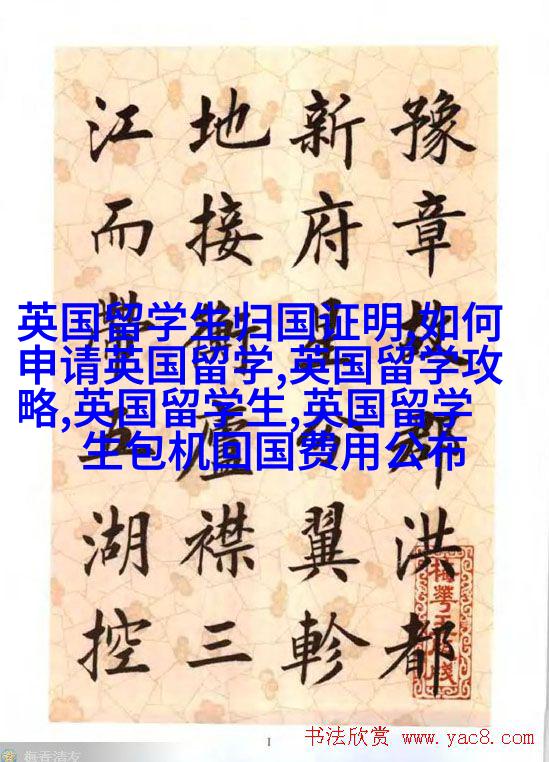 豫章故郡洪都
新府星分翼軫
地接衡廬襟三
江而帶五湖控
英国留学生归国证明,如何
申请英国留学,英国留学攻
略,英国留学生,英国留学
生包机回国费用公布
I
书法欣赏 www.yac8.com
梅香清友